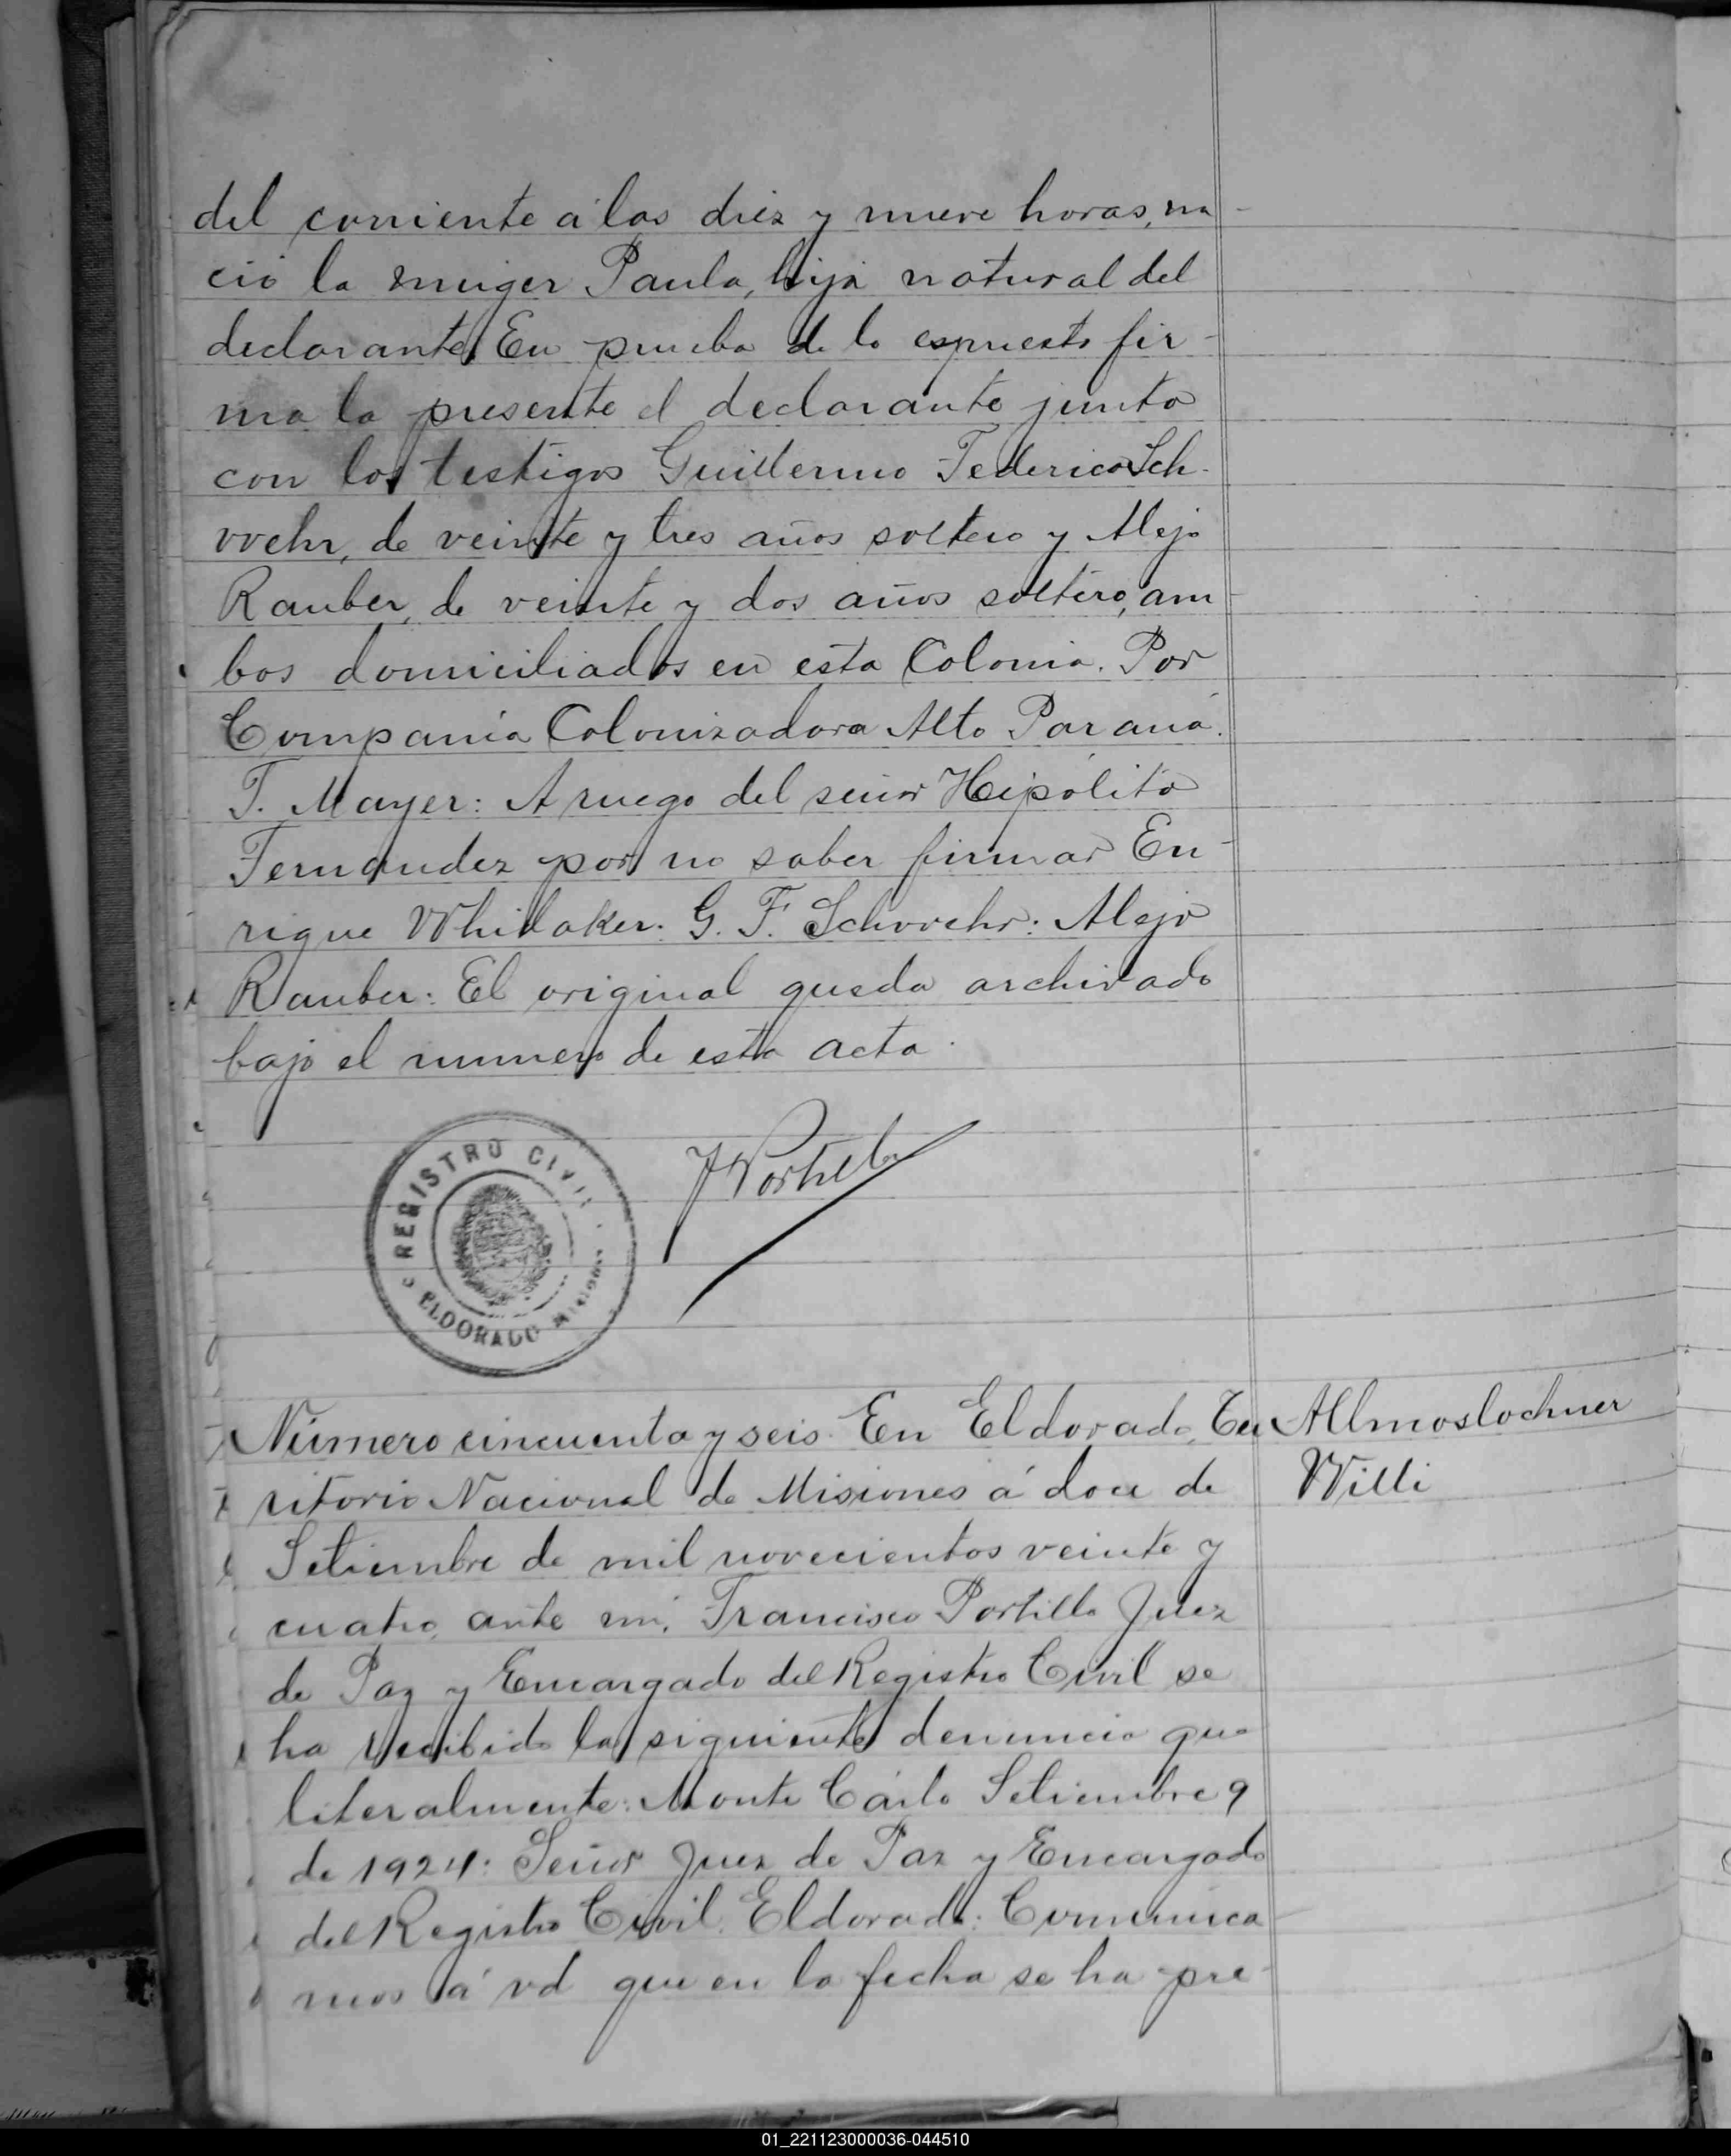 del corriente á las diez y nueve horas, na-
ció la muger Paula, hija natural del
declarante, En prueba de lo espuesto fir-
ma la presente el declarante junto
con los testigos Guillermo Federico Sch-
wehr, de veinte y tres años soltero y Alejo
Rauber, de veinte y dos años soltero, am-
bos domiciliados en esta Colonia. Por
Compania Colonizadora Alto Paraná.
F. Mayer: A ruego del señor Hipólito
Fernandez por no saber firmar En-
rique Whitaker. G. F. Schwehr: Alejo
Rauber: El original queda archivado
bajo el numero de esta acta.
REGISTRO CIVIL
ELDORADO Misiones
F Portillo
Número cincuenta y seis. En Eldorado, Te
Allmoslochner
Willi
ritorio Nacional de Misiones á doce de
Setiembre de mil novecientos veinte y
cuatro, ante mi, Francisco Portillo Juez
de Paz y Encargado del Registro Civil se
ha recibido la siguiente denuncia que
literalmente: Monte Carlo Setiembre 9
de 1924: Señor Juez de Paz y Encargado
del Registro Civil. Eldorado: Comunica-
mos á vd que en la fecha se ha pre-
01_221123000036-044510